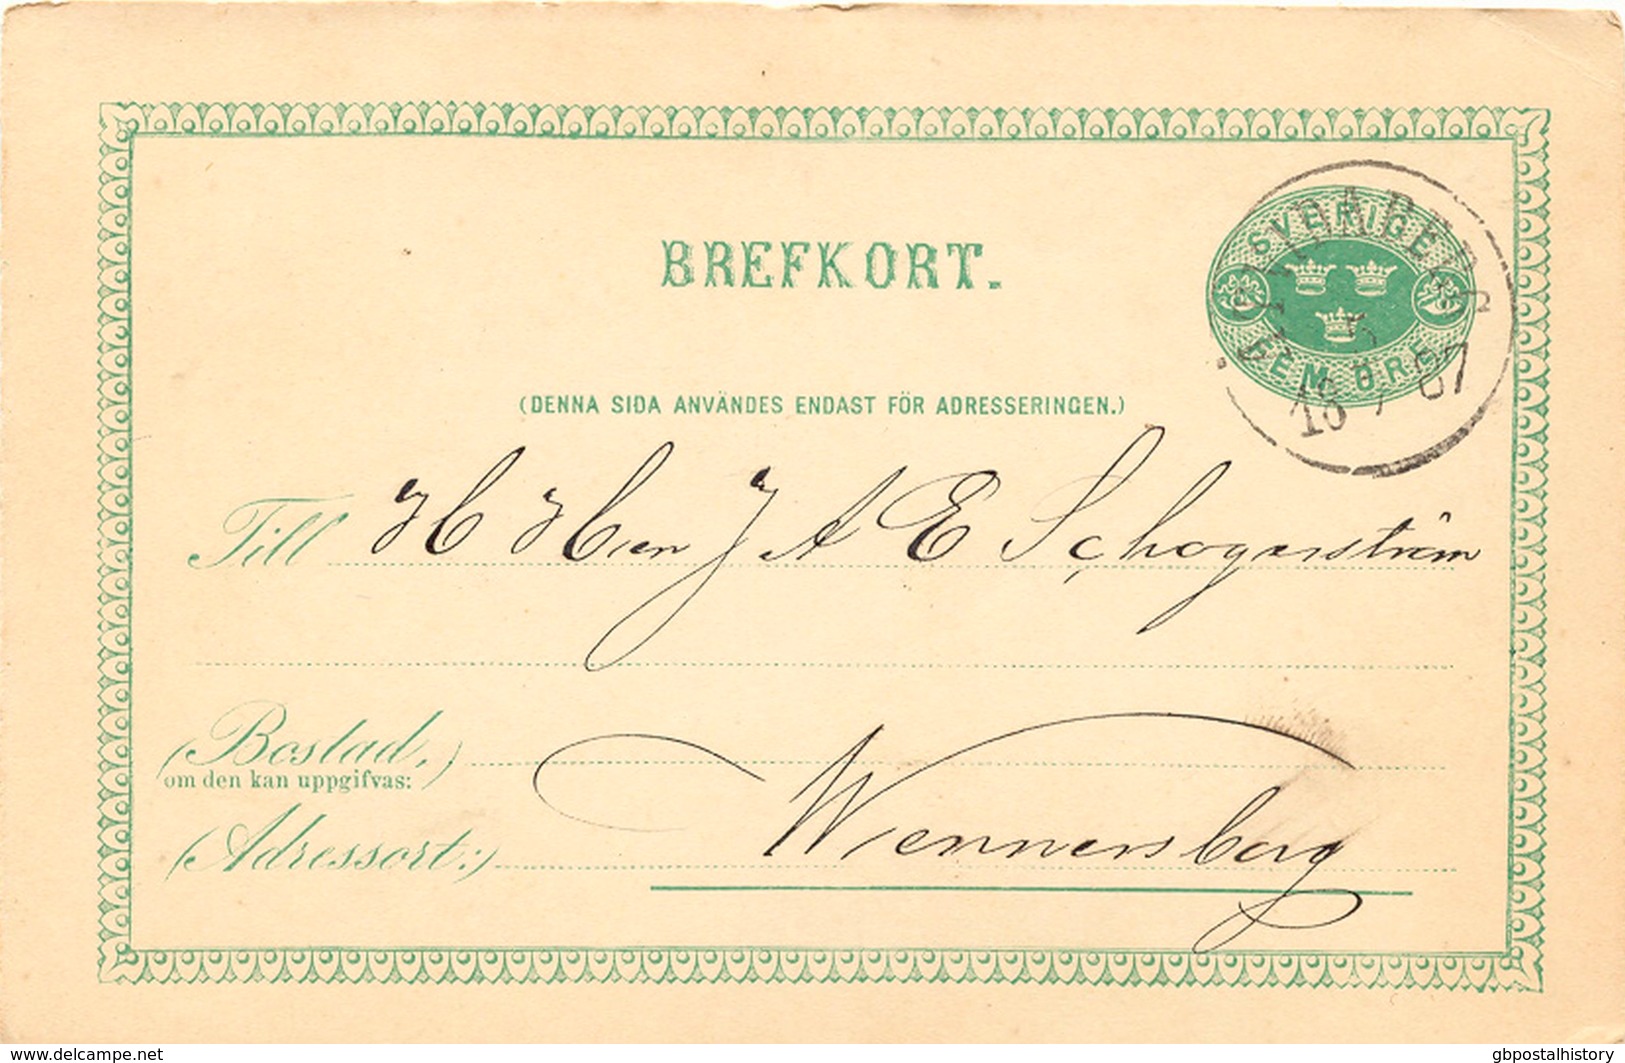 BREFKORT.
SVERIGE
FEM ÖRE
18 87
(DENNA SIDA ANVÄNDES ENDAST FÖR ADRESSERINGEN.)
Till H Herr J A E Schagerström
(Bostad,)
om den kan uppgifvas:
(Adressort:) Wennersborg
www.delcampe.net
gbpostalhistory